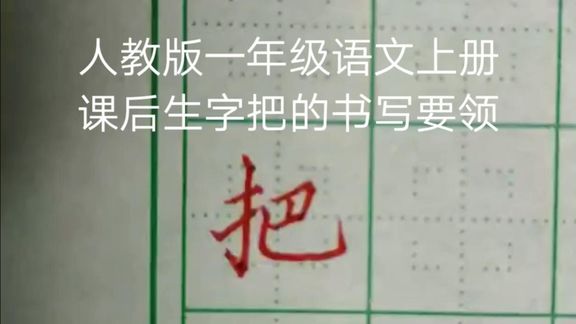 人教版一年级语文上册
课后生字把的书写要领
把